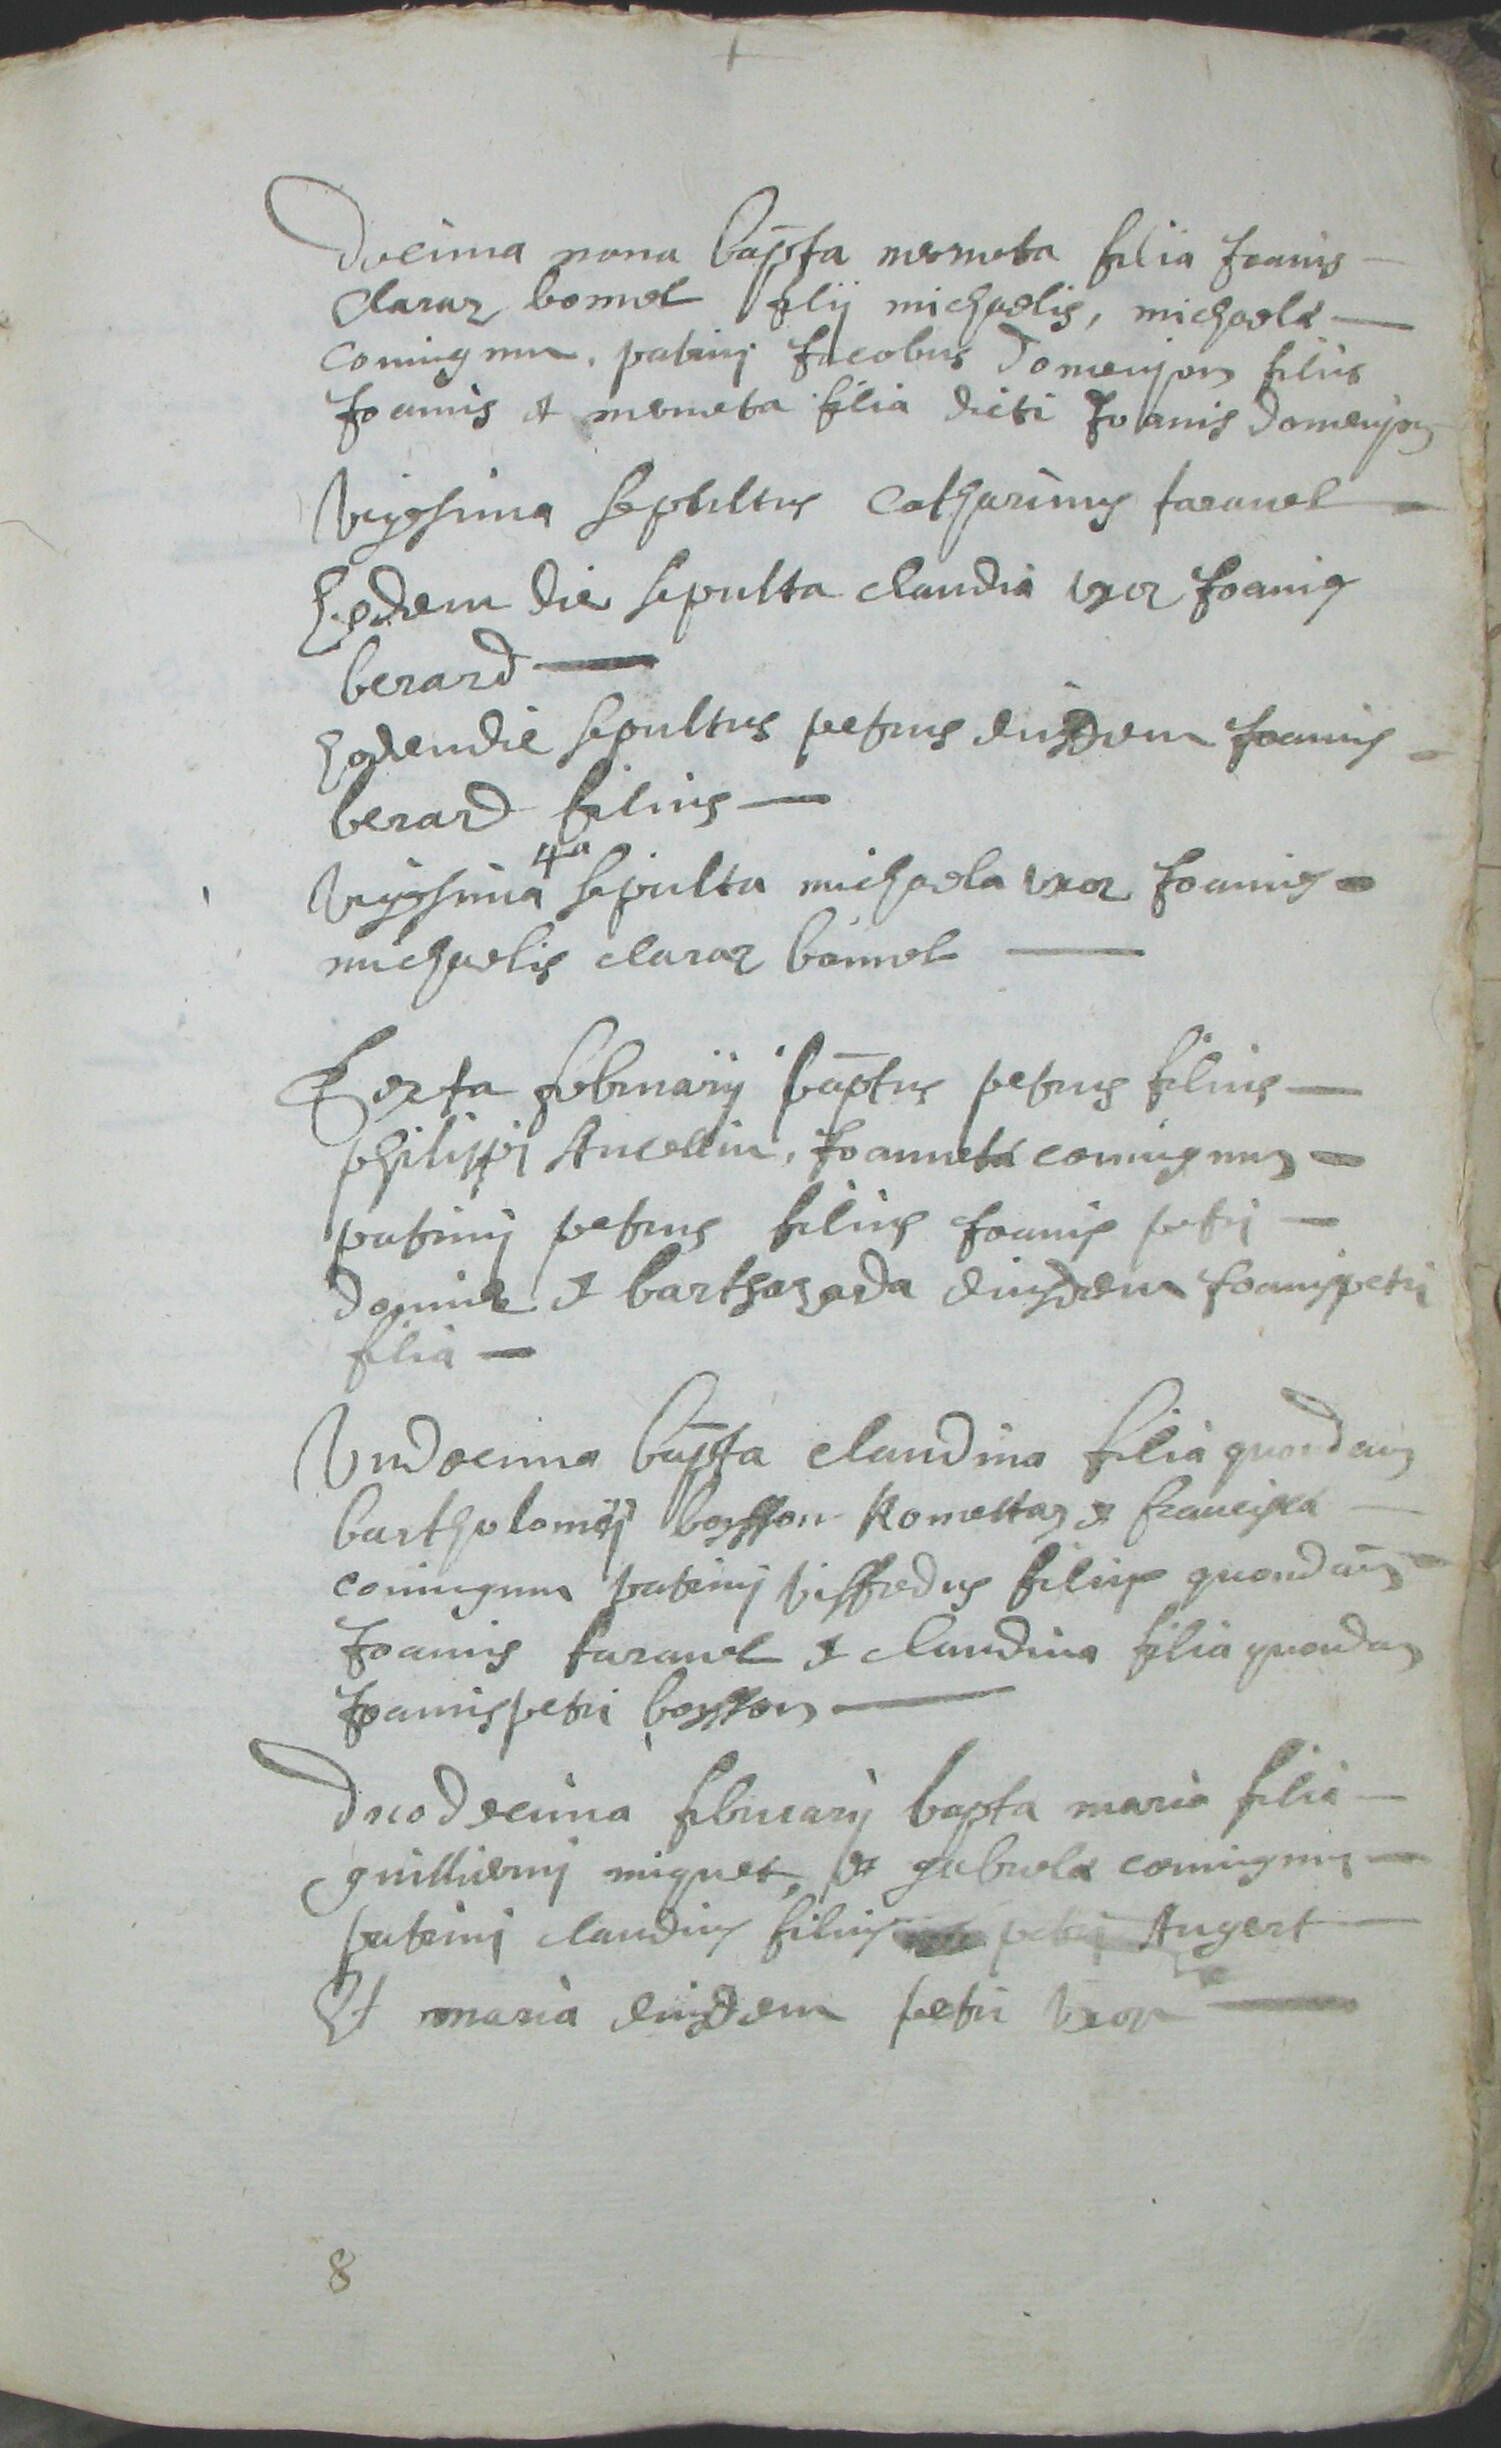 Decima nona bapta mermeta filia Joanis
Claraz bonnel filij michaelis, michaela
coniugum. patrinj Jacobus Domenjon filius
Joanis et mermeta filia dicti Joanis Domenjon
Vigesima sepultus Catharinus taravel
Eodem die sepulta claudia uxor Joanis
berard
Eodemdie sepultus petrus eiusdem Joanis
berard filius
Vigesima 4a sepulta michaela uxor Joanis
michaelis claraz bonnel
Sexta februarij baptus petrus filius
philippi Ancellin, Joanneta coniugum
patrinj petrus filius Joanis petri
et eiusdem Joanispetri
filia
Undecima bapta claudina filia quondam
bartholomej bosson Romettaz et francisca
coniugum patrinj filius quondam
Joanis taravel et claudina filia quondam
Joanispetri bosson
Duodecima februarij bapta maria filia
guilliermj miquet et gabriela coniugum
patrinj claudius filius petrj Angert
Et maria eiusdem petri uxor
8